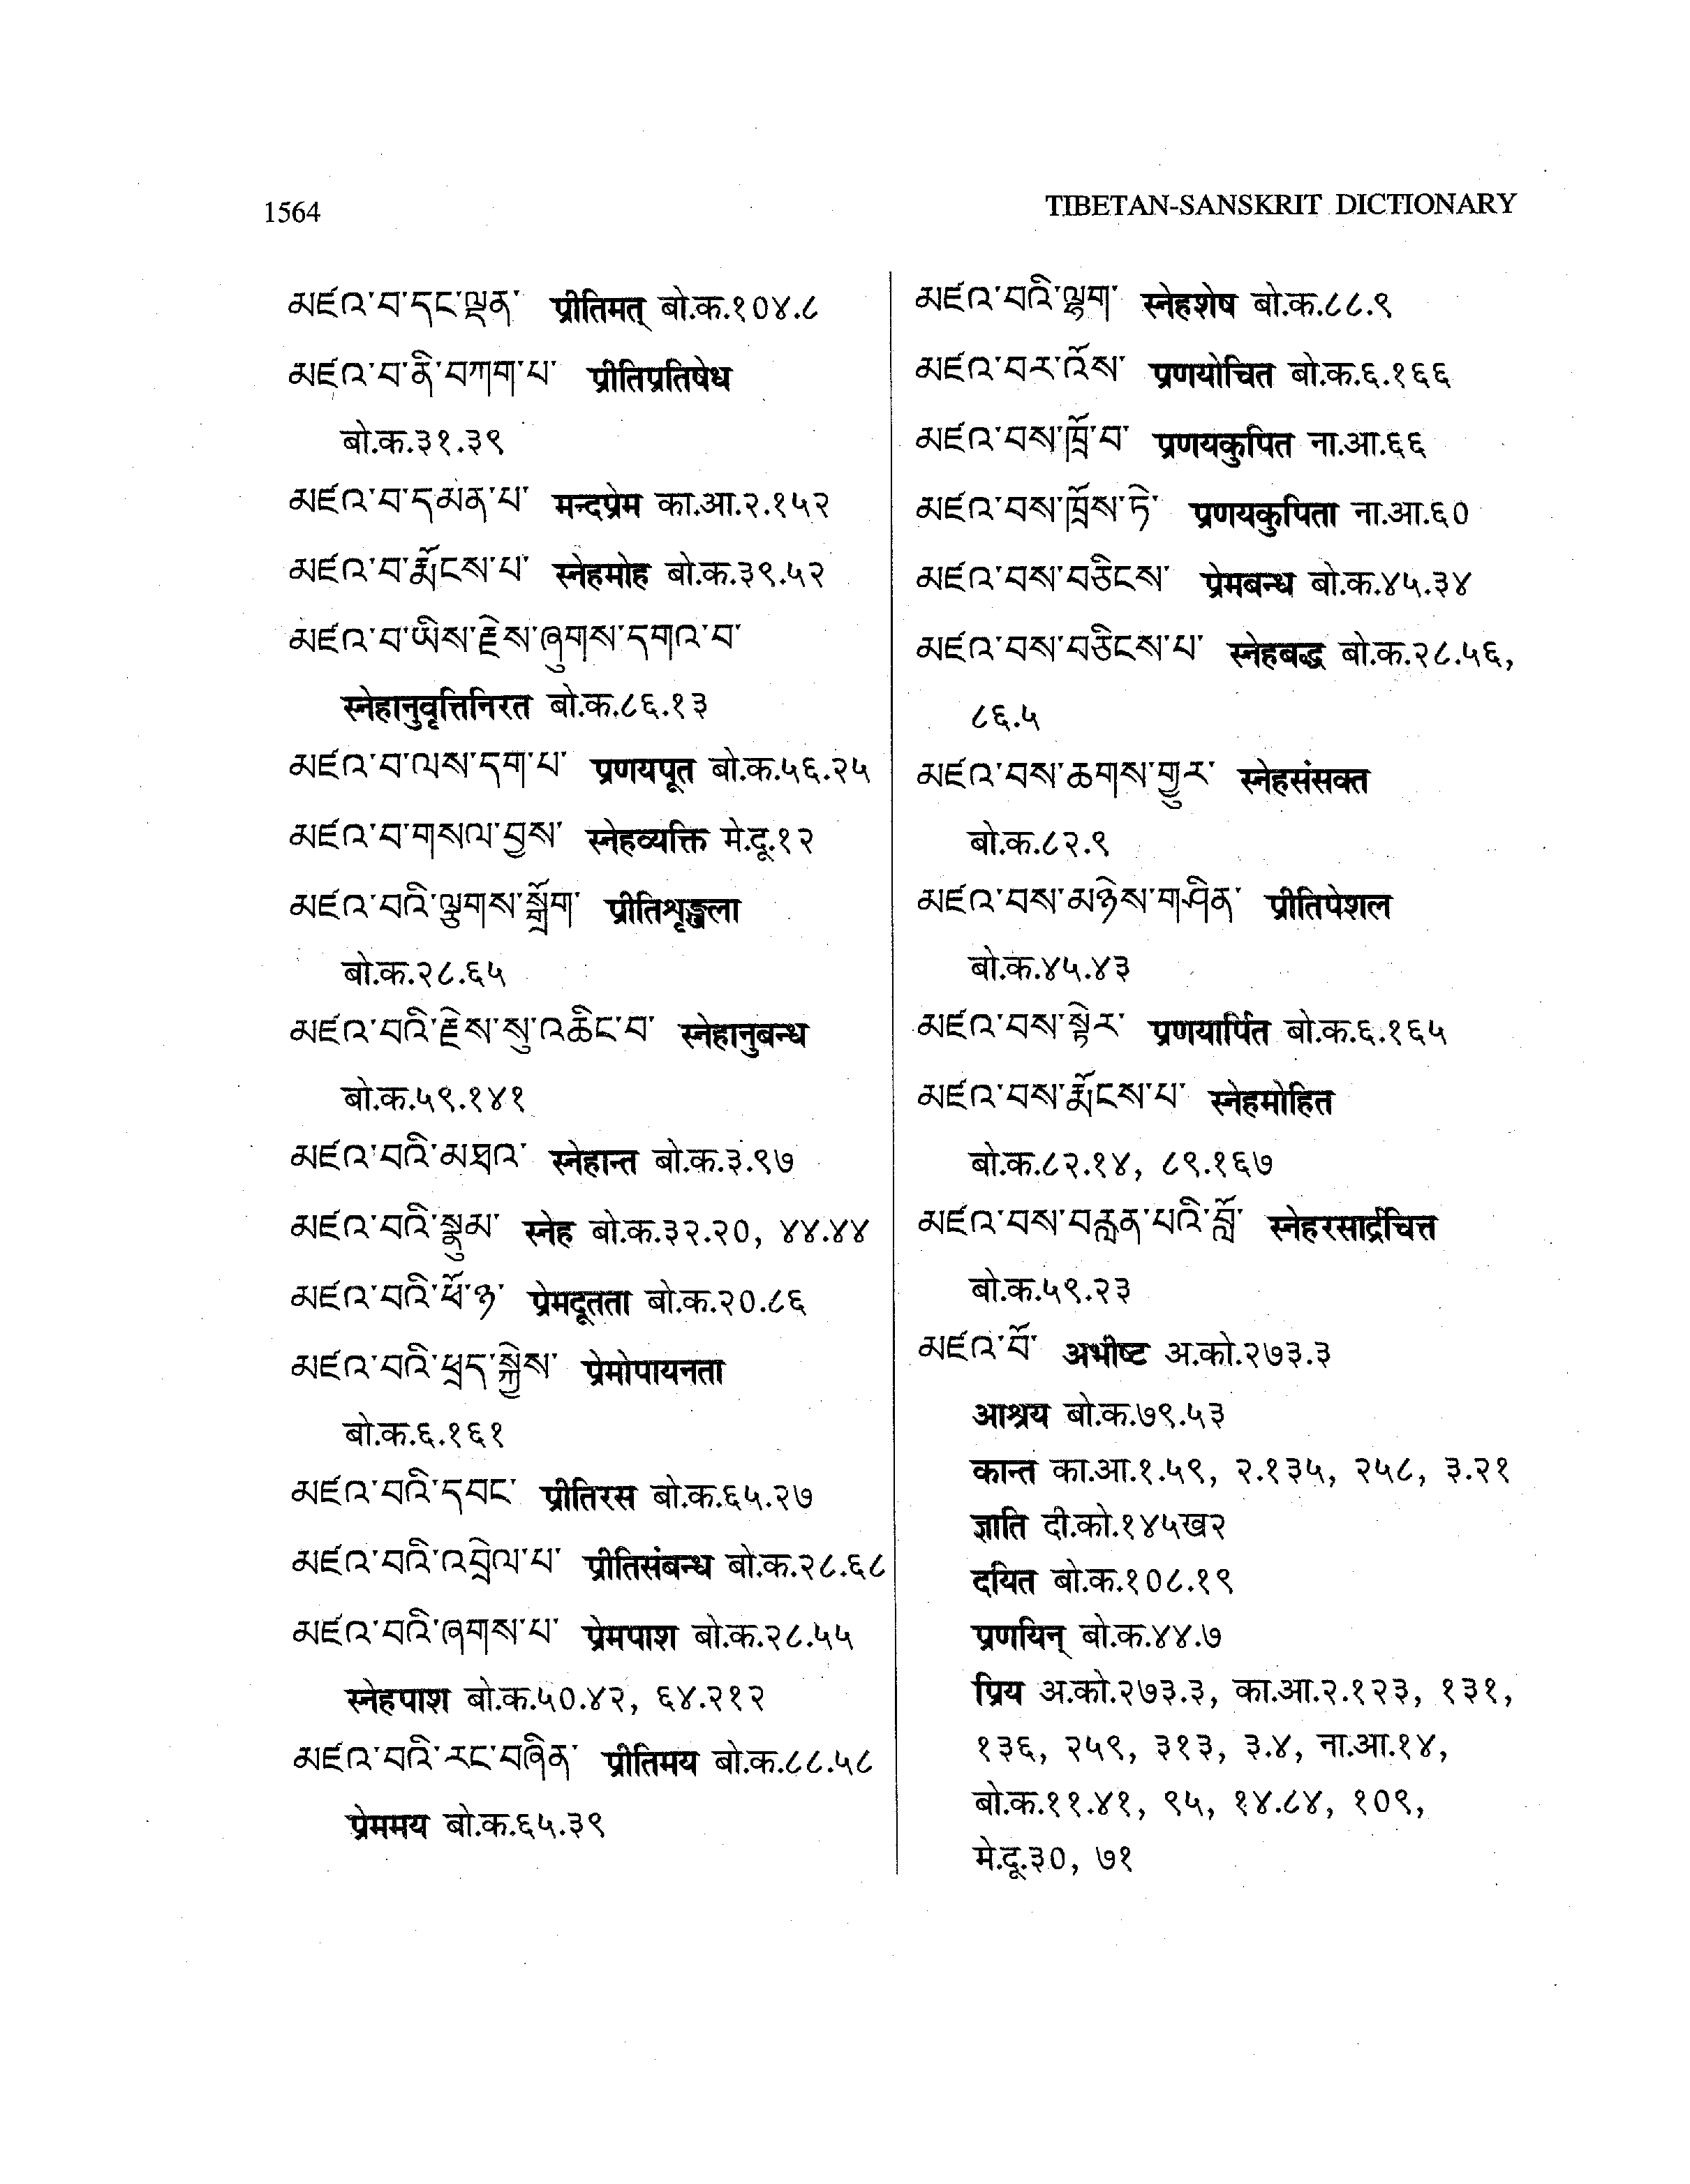 1564
TIBETAN-SANSKRIT DICTIONARY
མཛའ་བ་དང་ལྡན་ प्रीतिमत् बो.क.१०४.८
མཛའ་བ་ནི་བཀག་པ་ प्रीतिप्रतिषेध
बो.क.३१.३९
མཛའ་བ་དམན་པ་ मन्दप्रेम का.आ.२.१५२
མཛའ་བ་རྨོངས་པ་ स्नेहमोह बो.क.३९.५२
མཛའ་བ་ཡིས་རྗེས་ཞུགས་དགའ་བ་
स्नेहानुवृत्तिनिरत बो.क.८६.१३
མཛའ་བ་ལས་དག་པ་ प्रणयपूत बो.क.५६.२५
མཛའ་བ་གསལ་བྱས་ स्नेहव्यक्ति मे.दू.१२
མཛའ་བའི་ལྕགས་སྒྲོག་ प्रीतिशृङ्खला
बो.क.२८.६५
མཛའ་བའི་རྗེས་སུ་འཆིང་བ་ स्नेहानुबन्ध
बो.क.५९.१४१
མཛའ་བའི་མཐའ་ स्नेहान्त बो.क.३.९७
མཛའ་བའི་སྣུམ་ स्नेह बो.क.३२.२०, ४४.४४
མཛའ་བའི་ཕོ་ཉ་ प्रेमदूतता बो.क.२०.८६
མཛའ་བའི་ཕྲད་སྐྱེས་ प्रेमोपायनता
बो.क.६.१६१
མཛའ་བའི་དབང་ प्रीतिरस बो.क.६५.२७
མཛའ་བའི་འབྲེལ་པ་ प्रीतिसंबन्ध बो.क.२८.६८
མཛའ་བའི་ཞགས་པ་ प्रेमपाश बो.क.२८.५५
स्नेहपाश बो.क.५०.४२, ६४.२१२
མཛའ་བའི་རང་བཞིན་ प्रीतिमय बो.क.८८.५८
प्रेममय बो.क.६५.३९
མཛའ་བའི་ལྷག་ स्नेहशेष बो.क.८८.९
མཛའ་བར་འོས་ प्रणयोचित बो.क.६.१६६
མཛའ་བས་ཁྲོ་བ་ प्रणयकुपित ना.आ.६६
མཛའ་བས་ཁྲོས་ཏེ་ प्रणयकुपिता ना.आ.६०
མཛའ་བས་བཅིངས་ प्रेमबन्ध बो.क.४५.३४
མཛའ་བས་བཅིངས་པ་ स्नेहबद्ध बो.क.२८.५६,
८६.५
མཛའ་བས་ཆགས་གྱུར་ स्नेहसंसक्त
बो.क.८२.९
མཛའ་བས་མཉེས་གཤིན་ प्रीतिपेशल
बो.क.४५.४३
མཛའ་བས་སྟེར་ प्रणयार्पित बो.क.६.१६५
མཛའ་བས་རྨོངས་པ་ स्नेहमोहित
बो.क.८२.१४, ८९.१६७
མཛའ་བས་བརླན་པའི་བློ་ स्नेहरसार्द्रचित्त
बो.क.५९.२३
མཛའ་བོ་ अभीष्ट अ.को.२७३.३
आश्रय बो.क.७९.५३
कान्त का.आ.१.५९, २.१३५, २५८, ३.२१
ज्ञाति दी.को.१४५ख२
दयित बो.क.१०८.१९
प्रणयिन् बो.क.४४.७
प्रिय अ.को.२७३.३, का.आ.२.१२३, १३१,
१३६, २५९, ३१३, ३.४, ना.आ.१४,
बो.क.११.४१, ९५, १४.८४, १०९,
मे.दू.३०, ७१